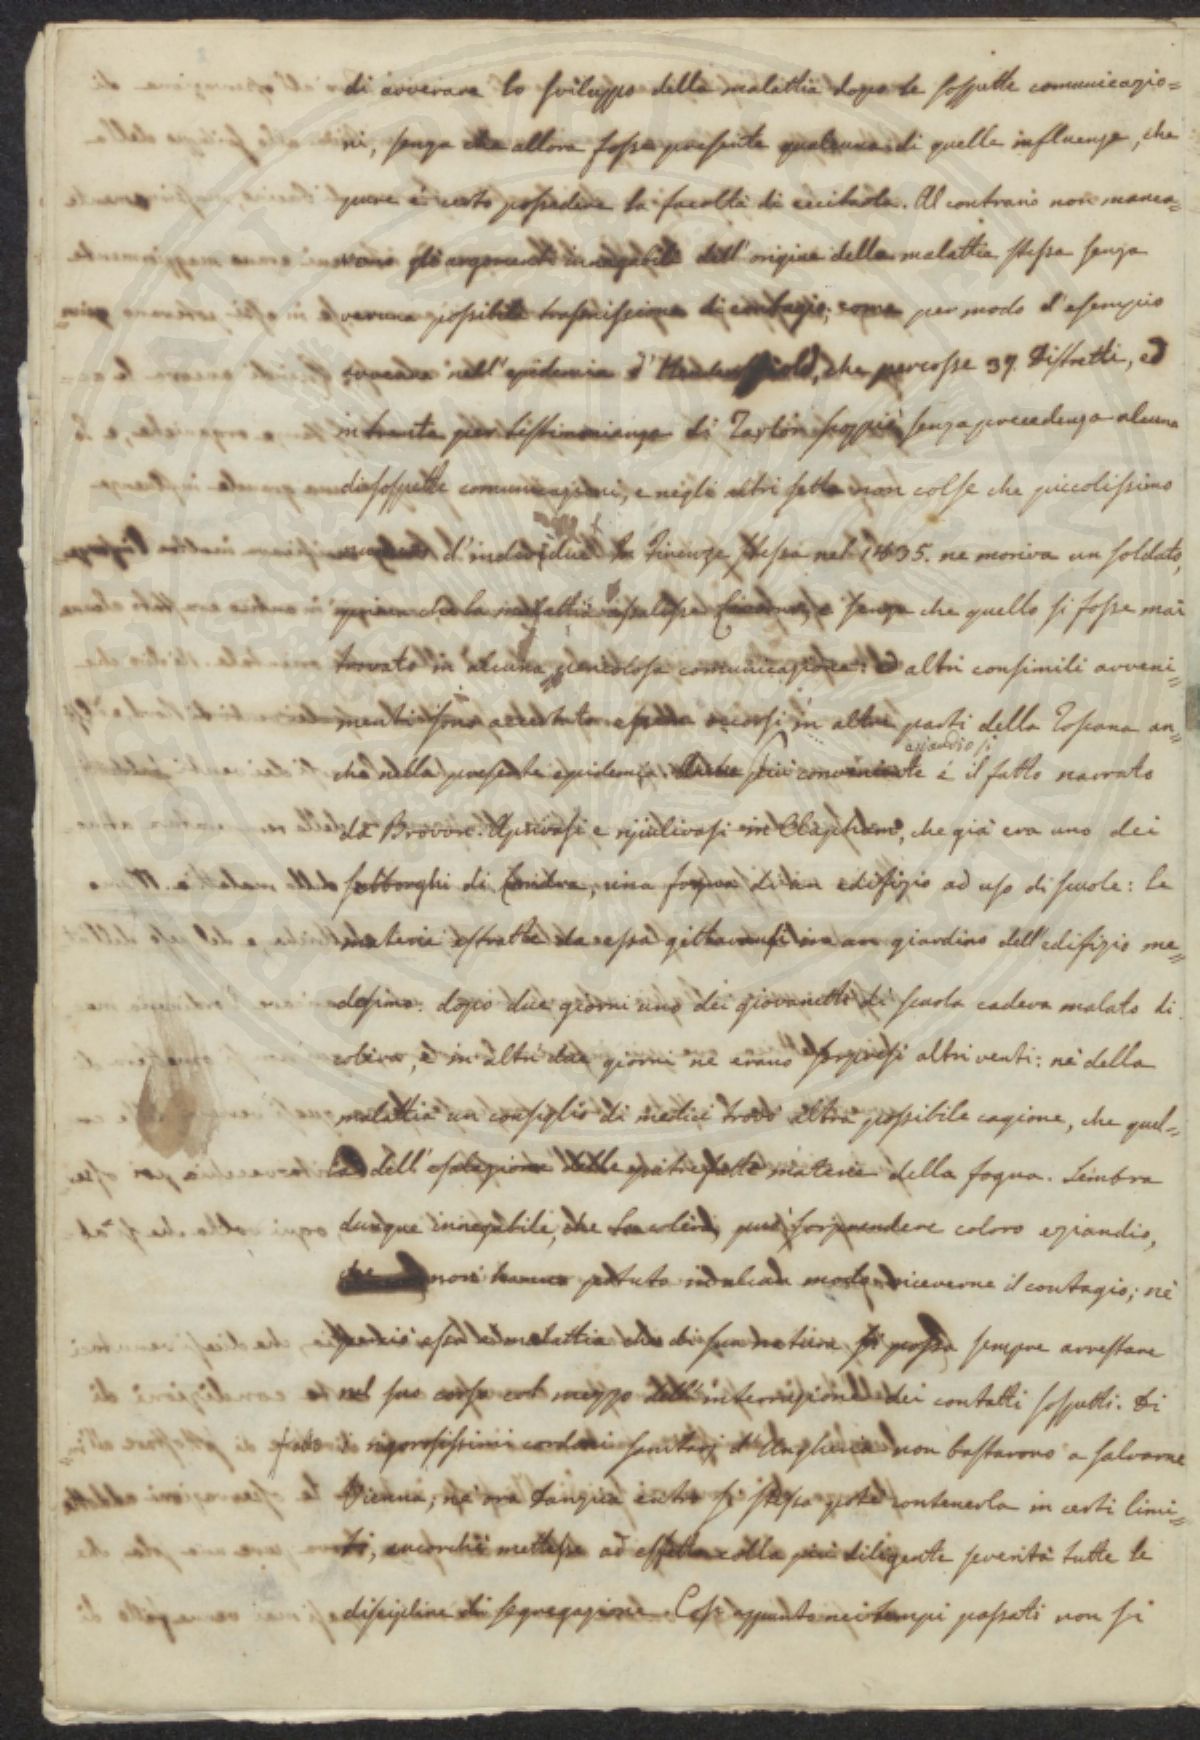 di avverare lo sviluppo della malattia dopo le sospette comunicazio=
ni, senza che allora fosse presente qualcuna di quelle influenze, che
pure è certo possedere la facoltà di eccitarla. Al contrario non manca=
vano gli argomenti innegabili dell'origine della malattia stessa senza
veruna possibile trasmissione di contagio; come per modo d'esempio
nell'epidemia d' che percosse 37. Distretti, ed
in trenta per testimonianza di Taylor scoppiò senza precedenza alcuna
di sospette comunicazioni, e negli altri sette non colse che piccolissimo
numero d'individui. In Firenze stessa nel 1835. ne moriva un soldato,
prima che la malattia assalisse Livorno, e senza che quello si fosse mai
trovato in alcuna pericolosa comunicazione: ed altri consimili avveni=
menti sono accertato essere occorsi in altre parti della Toscana an=
che nella presente epidemia. Anche più conveniente è eziandio il fatto narrato
da Brown. Aprivasi e ripulivasi in Clapham, che già era uno dei
sobborghi di Londra, una fogna di un edifizio ad uso di scuole: le
materie estratte da essa gittavansi in un giardino dell'edifizio me=
desimo: dopo due giorni uno dei giovanetti di scuola cadeva malato di
colèra, e in altri due giorni ne erano sorpresi altri venti: nè della
malattia un consiglio di medici trovò altra possibile cagione, che quel=
la dell'esalazione delle putrefatte materie della fogna. Sembra
dunque innegabile, che la colèra può sorprendere coloro eziandio,
che non hanno potuto in alcun modo riceverne il contagio; nè
perciò essa è malattia che di sua natura si possa sempre arrestare
nel suo corso col mezzo dell'interruzione dei contatti sospetti. Di
fatto i rigorosissimi cordoni sanitarj d'Ungheria non bastarono a salvarne
Vienna; nè ora Danzica entro sè stessa potè contenerla in certi limi=
ti, ancorchè mettesse ad effetto colla più diligente severità tutte le
discipline di segregazione. Così appunto nei tempi passati non si